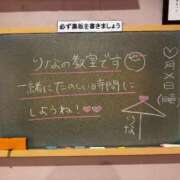 必ず黒板を書きましょう
りなの教室です
一緒にたのしい時間に
しようね!
りな